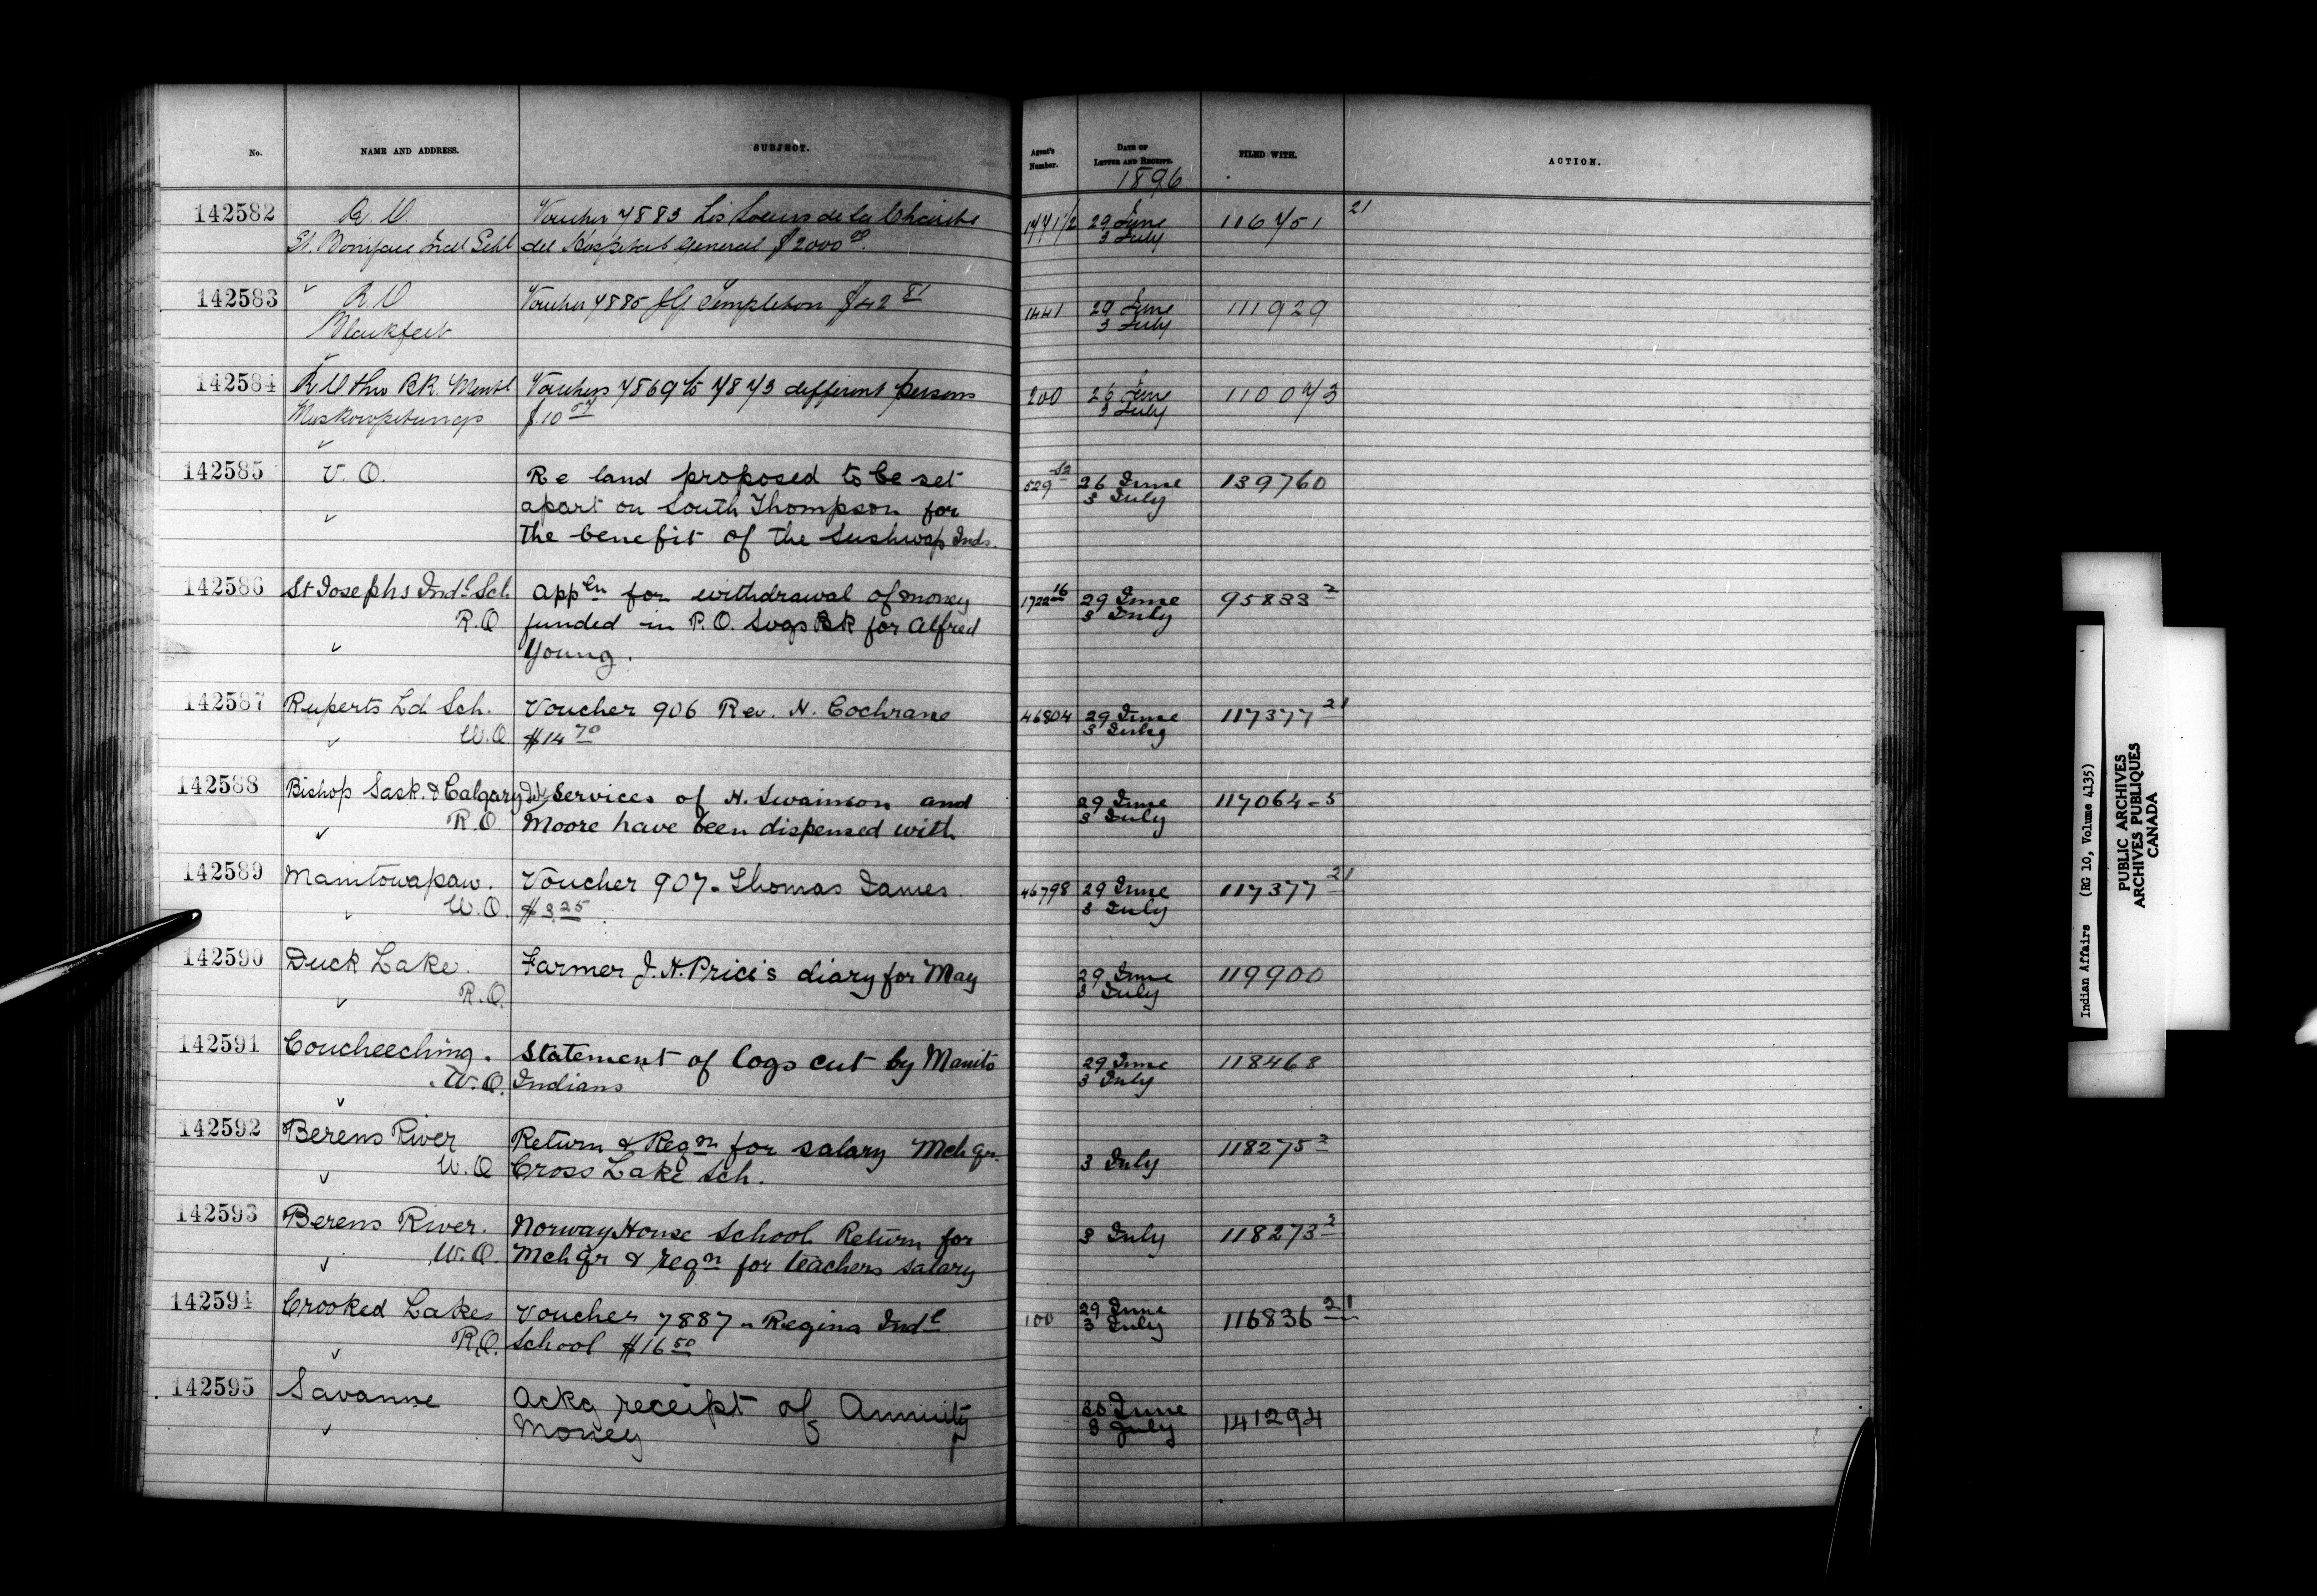 No. NAME AND ADDRESS. SUBJECT. Agent's Number. DATE OF LETTER AND RECEIPT. FILED WITH. ACTION.
1896
142582 R. O. Voucher 7883 Les Soeurs de la Charité 29 June 116751 21
St. Boniface Indl Schl del Hospital General $2000 00. 3 July
142583 R. O Voucher 7885 J G Templeton $42 81 1441 29 June 111929
Blackfeet 3 July
142584 R. O thro R.R. Mentl Vouchers 7869 to 7873 different persons 200 26 June 110073
Muskowpetungs $10 3 July
142585 V. O. Re land proposed to be set 529 52 26 June 139760
apart on South Thompson for 3 July
the benefit of the Sushwap Inds.
142586 St Josephs Indl Sch Appln for withdrawal of money 1722 16 29 June 95833 2
R.O funded in P.O. Svgs BK for Alfred 3 July
Young.
142587 Ruperts Ld Sch. Voucher 906 Rev. H. Cochrane 46804 29 June 117377 21
W.O. $14 70 3 July
142588 Bishop Sask. & Calgary Services of H. Swainson and 29 June 117064-5
R.O. Moore have been dispensed with 3 July
142589 Manitowapaw. Voucher 907 - Thomas James 46798 29 June 117377 21
W.O. $3.25 3 July
142590 Duck Lake. Farmer J.H. Price's diary for May 29 June 119900
R.O. 3 July
142591 Coucheeching. Statement of logs cut by Manito 29 June 118468
W.O. Indians 3 July
142592 Berens River Return & Reqn for salary Mch qr. 118275 2
W.O Cross Lake Sch. 3 July
142593 Berens River. Norway House School Return for 3 July 118273 2
W.O. Mch qr & reqn for teachers salary
142594 Crooked Lakes Voucher 7887 - Regina Indl 100 29 June 116836 21
R.O. School $16 50 3 July
142595 Savanne Ackg receipt of Annuity 30 June 141294
Money 3 July
Indian Affairs (RG 10, Volume 4135)
PUBLIC ARCHIVES
ARCHIVES PUBLIQUES
CANADA